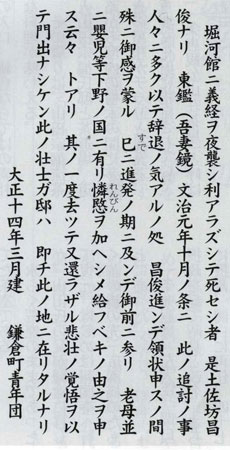 堀河館ニ義経ヲ夜襲シ利アラズシテ死セシ者　是土佐坊昌
俊ナリ　東鑑（吾妻鏡）文治元年十月ノ条ニ　此ノ追討ノ事
人々ニ多ク以テ辞退ノ気アルノ処　昌俊進ンデ領状申スノ間
殊ニ御感ヲ蒙ル　已ニ進発ノ期ニ及ンデ御前ニ参リ　老母並
ニ嬰児等下野ノ国ニ有リ憐愍ヲ加ヘシメ給フベキノ由之ヲ申
ス云々　トアリ　其ノ一度去ツテ又還ラザル悲壮ノ覚悟ヲ以
テ門出ナシケン此ノ壮士ガ邸ハ　即チ此ノ地ニ在リタルナリ
大正十四年三月建　鎌倉町青年団
すで
れんびん